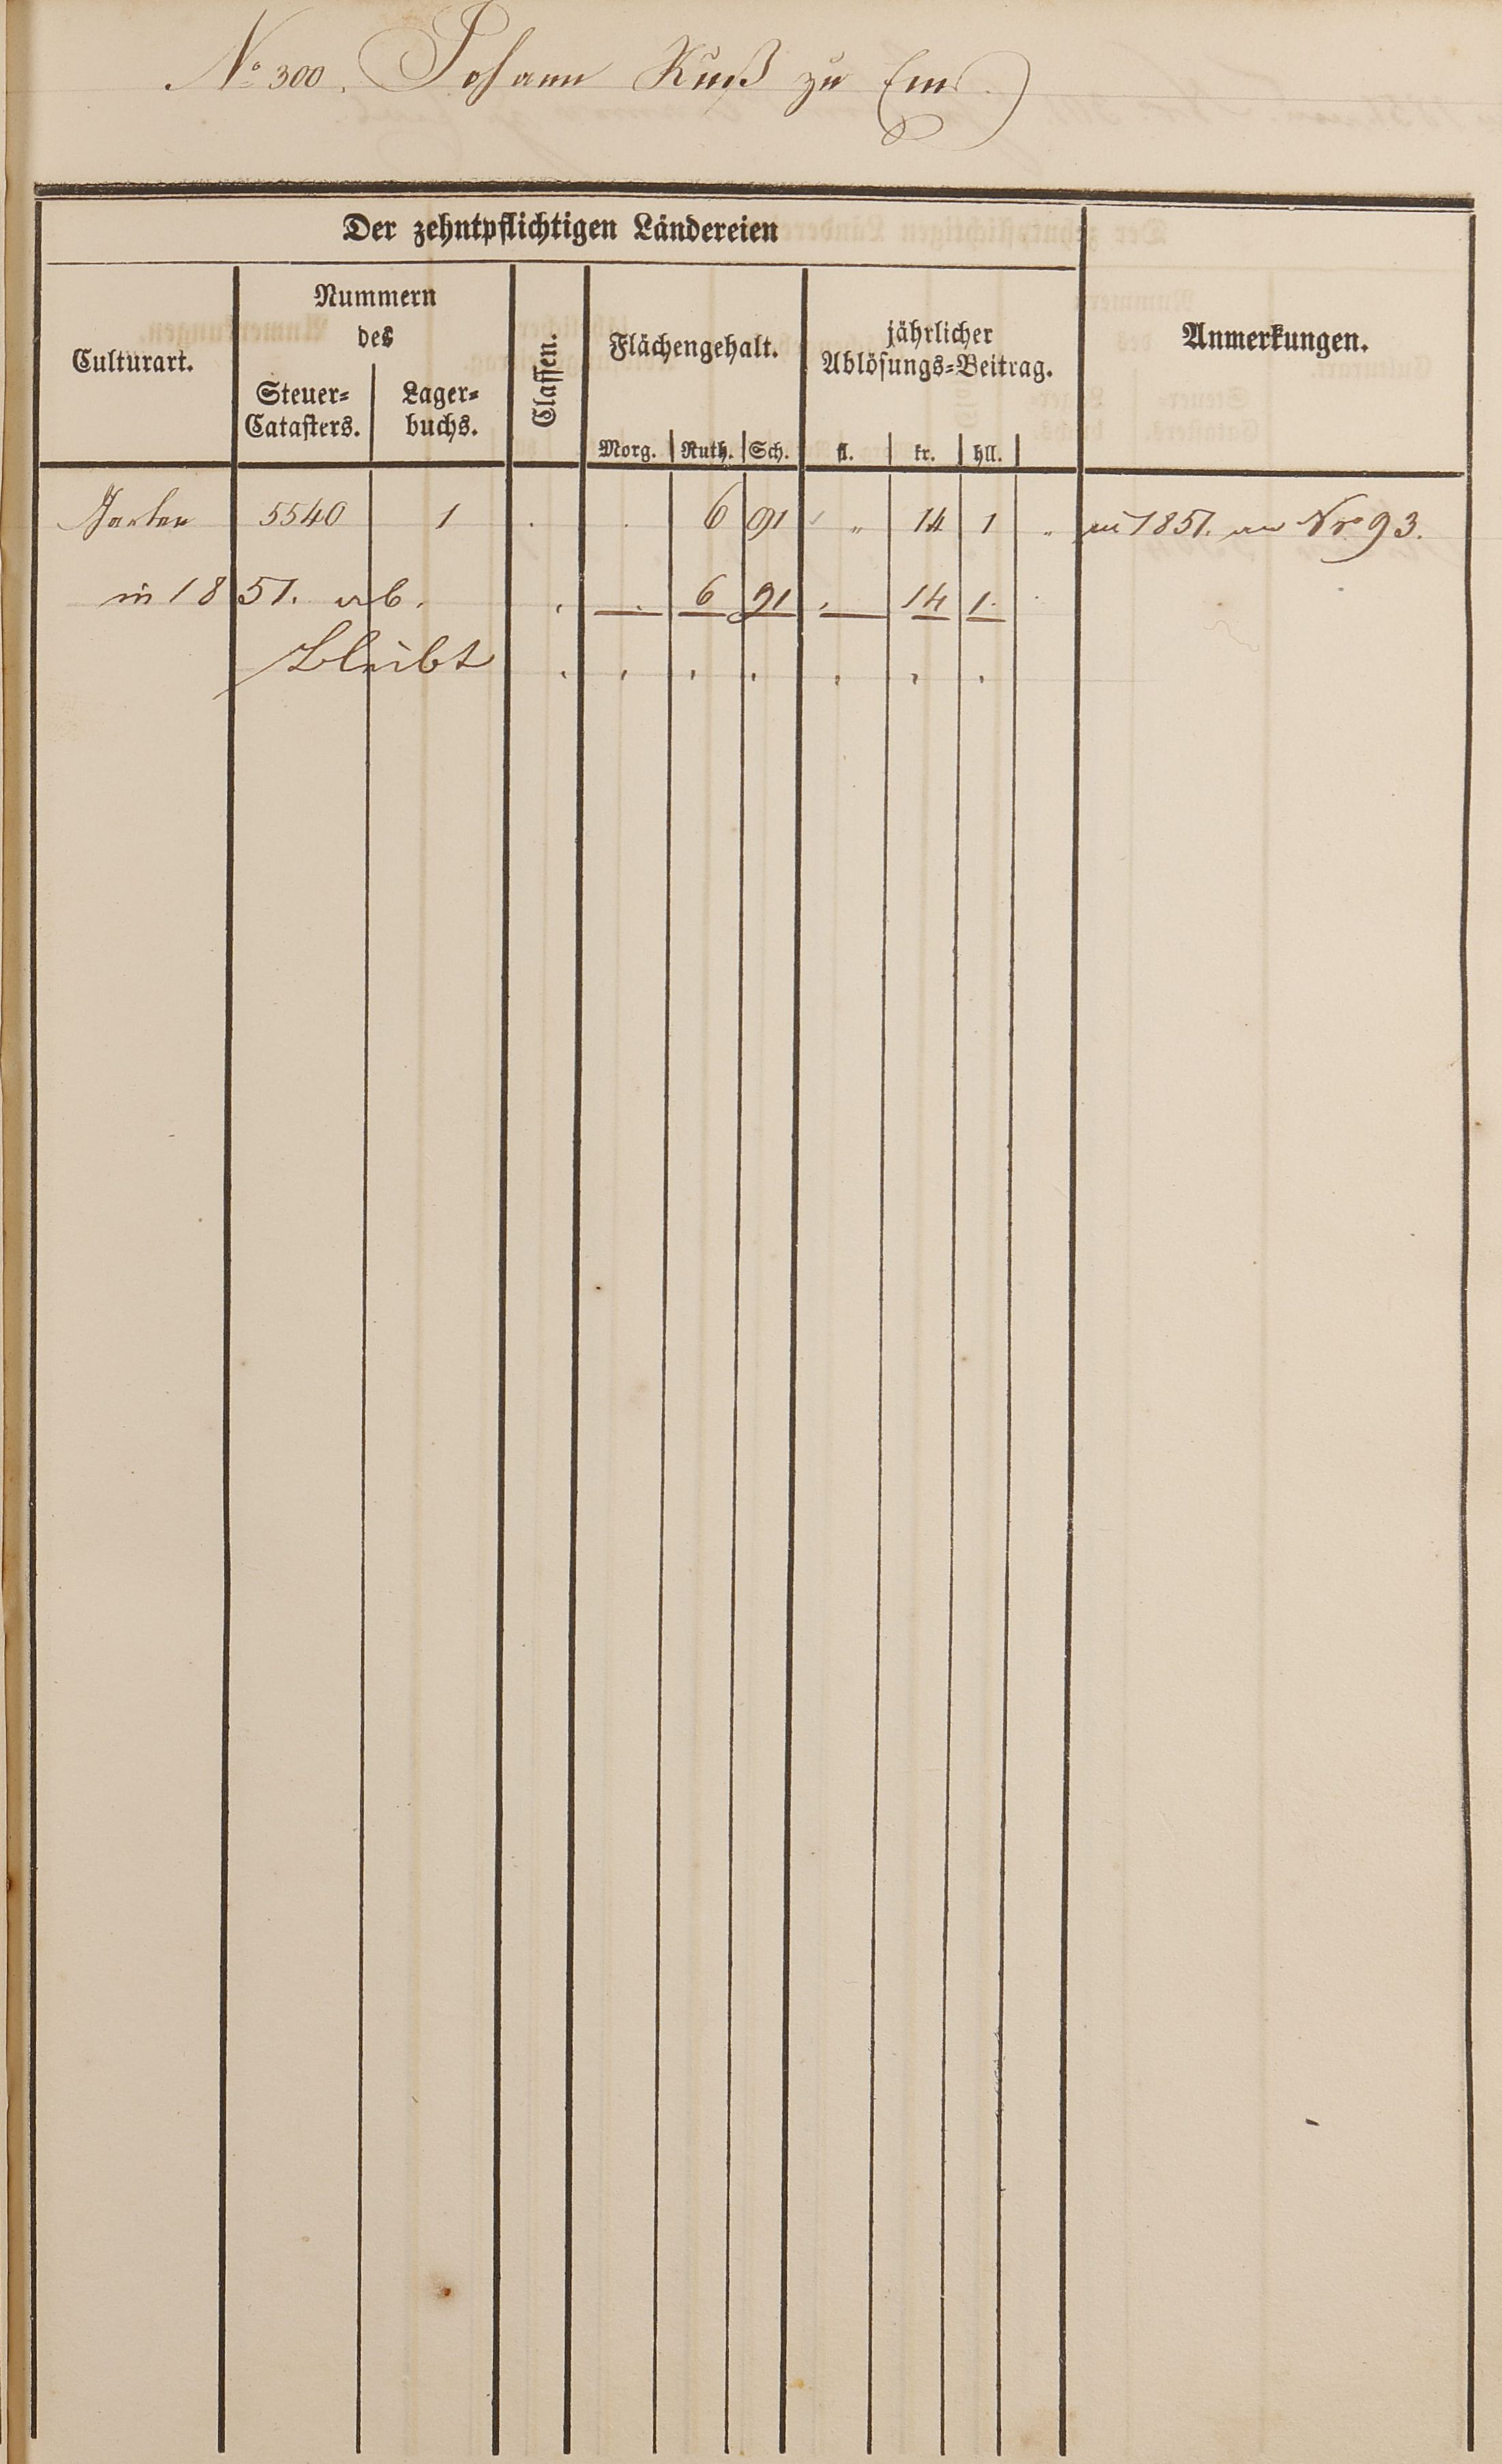 No 300. Johann Kuß zu Ems.
Der zehntpflichtigen Ländereien
Culturart.
Nummern
des
Steuer-
Catasters.
Lager-
buchs.
Classen.
Flächengehalt.
Morg. Ruth. Sch.
jährlicher
Ablösungs-Beitrag.
fl. kr. hll.
Anmerkungen.
Garten 5540 1 . . 6 91 " 14 1 " in 1851. an Nro 93.
in 1851. ab. . . 6 91 . 14 1.
bleibt . . . . . . .